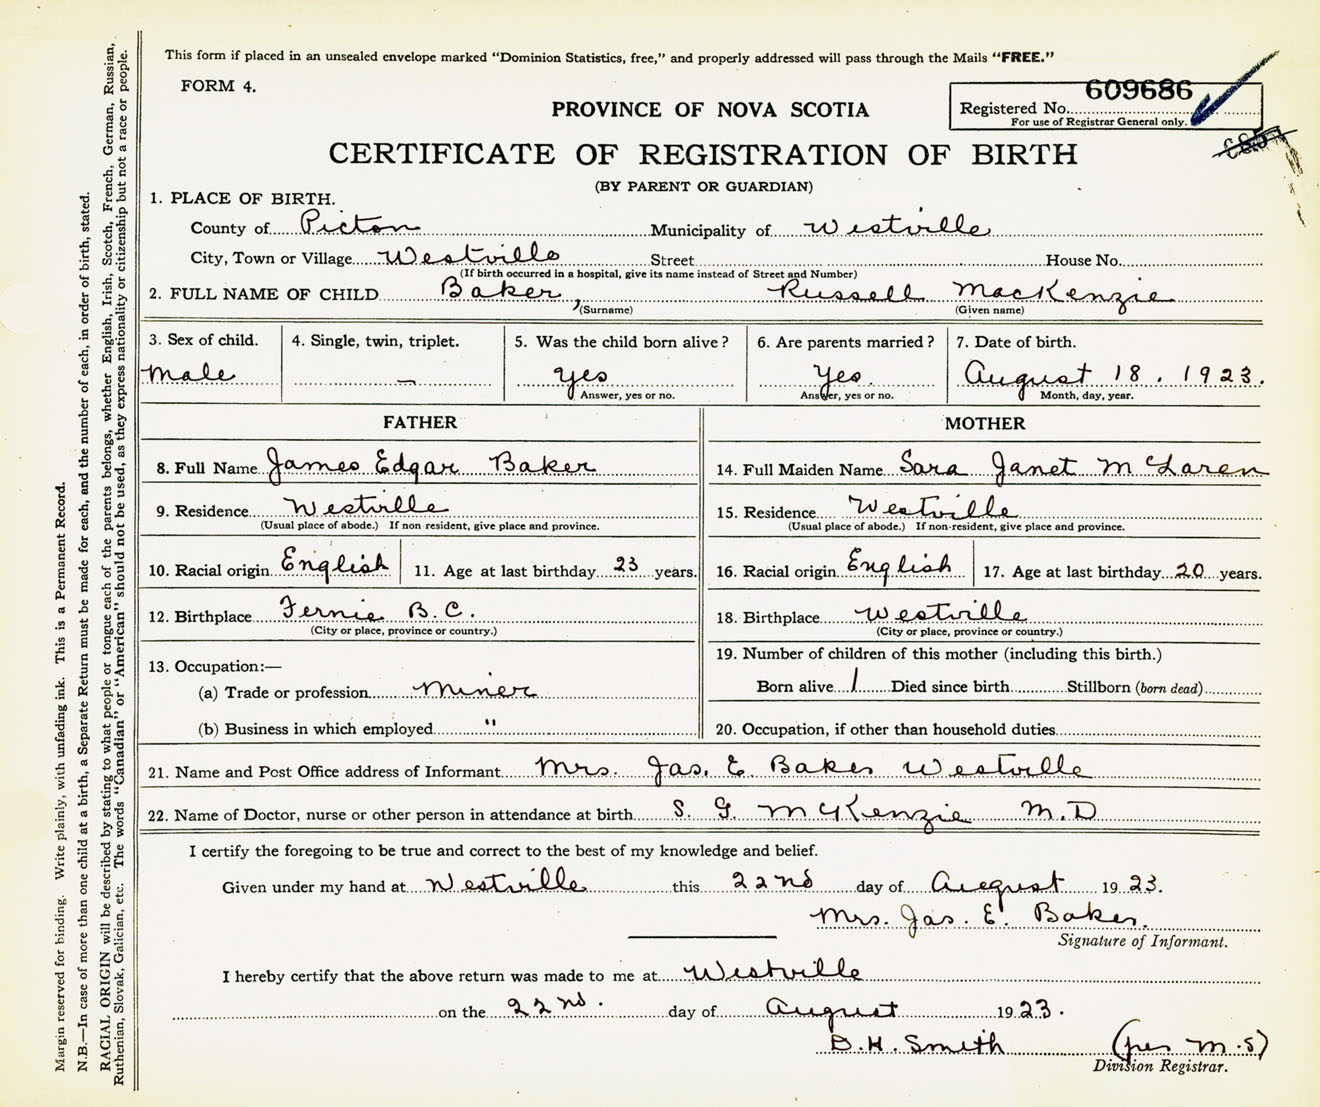 This form if placed in an unsealed envelope marked "Dominion Statistics, free," and properly addressed will pass through the Mails "FREE."
FORM 4.
609686
PROVINCE OF NOVA SCOTIA
Registered No.
For use of Registrar General only.
CERTIFICATE OF REGISTRATION OF BIRTH
(BY PARENT OR GUARDIAN)
1. PLACE OF BIRTH.
County of Picton Municipality of Westville
City, Town or Village Westville Street House No.
(If birth occurred in a hospital, give its name instead of Street and Number)
2. FULL NAME OF CHILD Baker, Russell MacKenzie
(Surname) (Given name)
3. Sex of child. 4. Single, twin, triplet. 5. Was the child born alive? 6. Are parents married? 7. Date of birth.
Male — yes Yes. August 18. 1923.
Answer, yes or no. Answer, yes or no. Month, day, year.
FATHER MOTHER
8. Full Name James Edgar Baker 14. Full Maiden Name Sara Janet McLaren
9. Residence Westville 15. Residence Westville
(Usual place of abode.) If non-resident, give place and province. (Usual place of abode.) If non-resident, give place and province.
10. Racial origin English 11. Age at last birthday 23 years. 16. Racial origin English 17. Age at last birthday 20 years.
12. Birthplace Fernie B.C. 18. Birthplace Westville
(City or place, province or country.) (City or place, province or country.)
13. Occupation:— 19. Number of children of this mother (including this birth.)
(a) Trade or profession Miner Born alive 1 Died since birth Stillborn (born dead)
(b) Business in which employed " 20. Occupation, if other than household duties
21. Name and Post Office address of Informant Mrs. Jas. E Baker Westville
22. Name of Doctor, nurse or other person in attendance at birth S. G. McKenzie M.D
I certify the foregoing to be true and correct to the best of my knowledge and belief.
Given under my hand at Westville this 22nd day of August 1923.
Mrs. Jas. E. Baker.
Signature of Informant.
I hereby certify that the above return was made to me at Westville
on the 22nd. day of August 1923.
D.H. Smith (per M.S)
Division Registrar.
Margin reserved for binding. Write plainly, with unfading ink. This is a Permanent Record.
N.B.—In case of more than one child at a birth, a Separate Return must be made for each, and the number of each, in order of birth, stated.
RACIAL ORIGIN will be described by stating to what people or tongue each of the parents belongs, whether English, Irish, Scotch, French, German, Russian,
Ruthenian, Slovak, Galician, etc. The words "Canadian" or "American" should not be used, as they express nationality or citizenship but not a race or people.